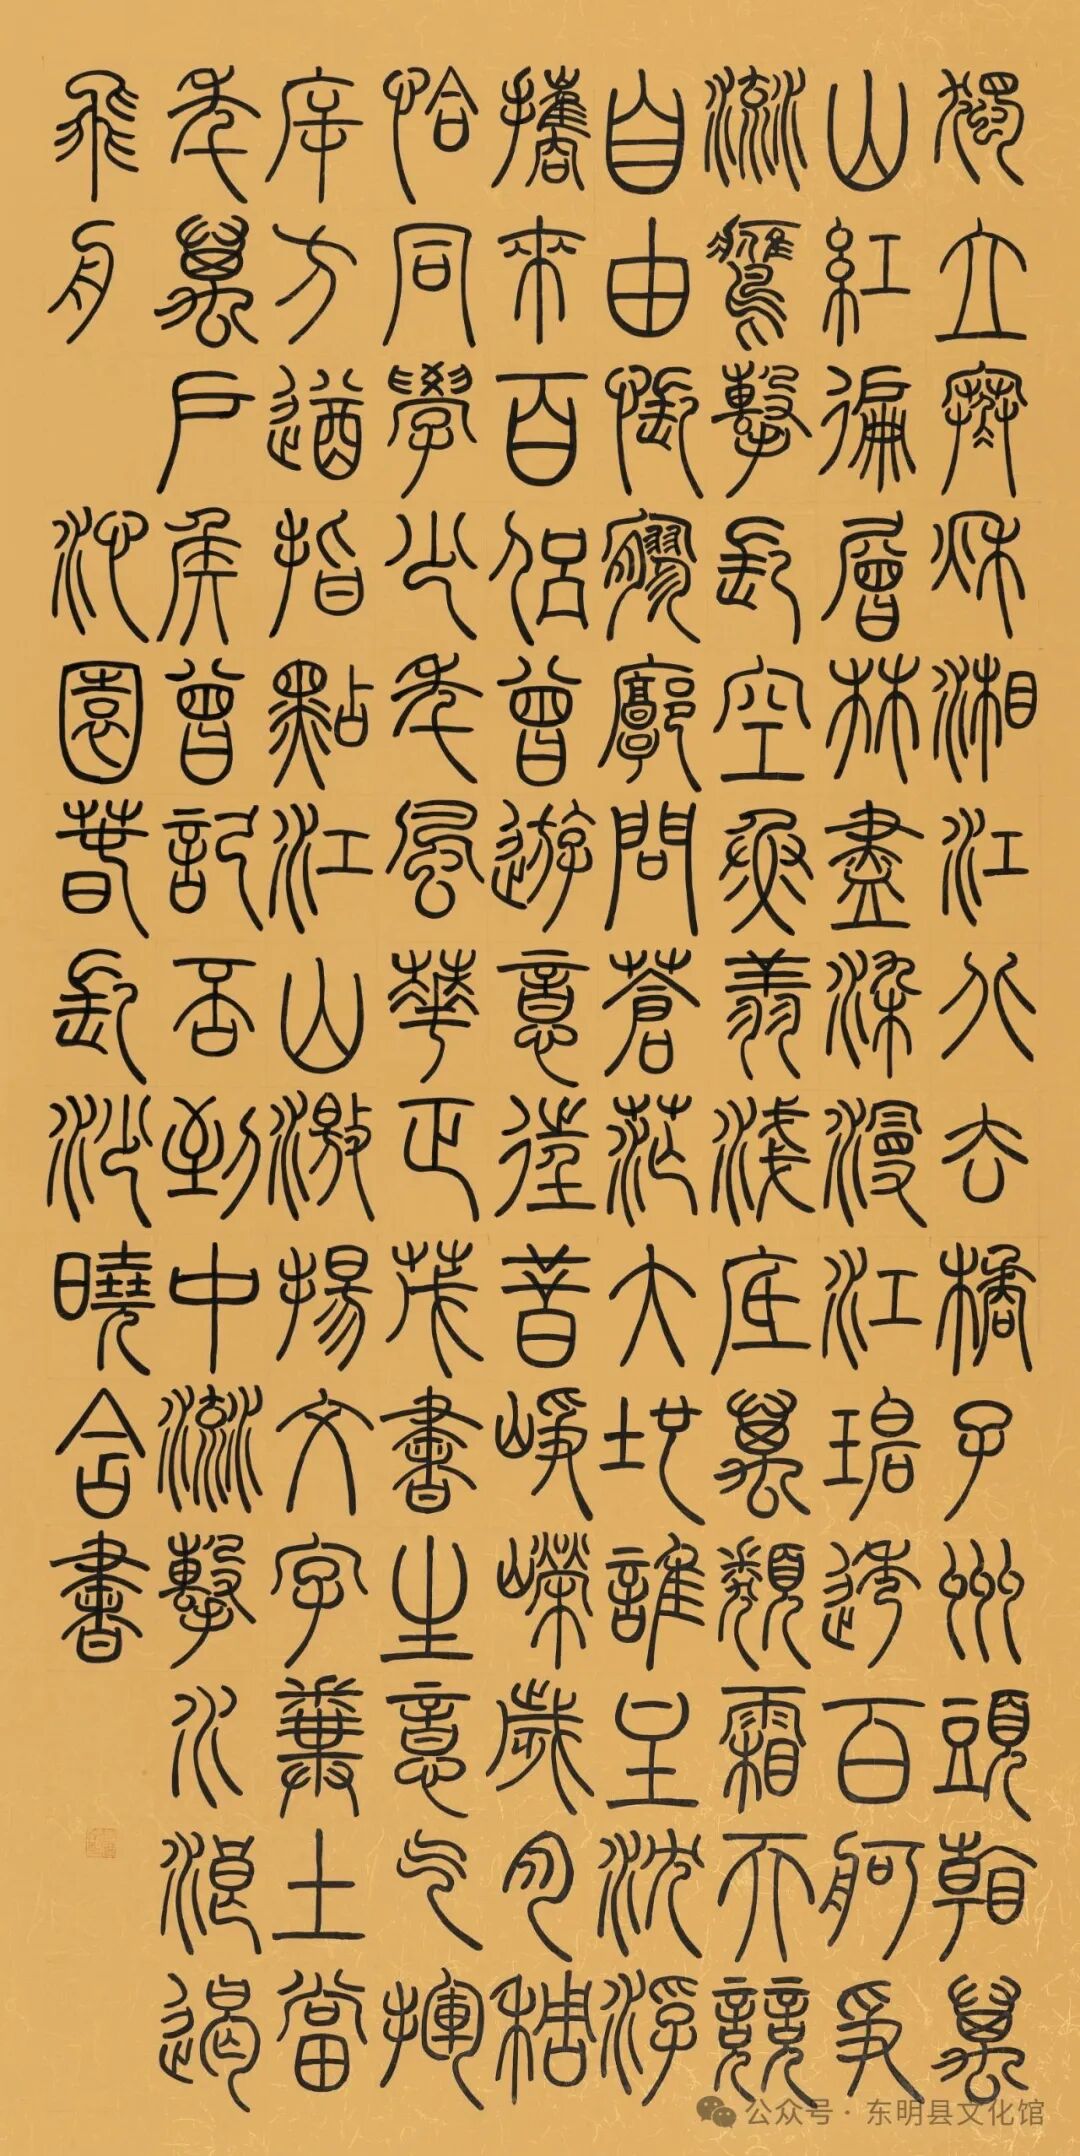 獨立寒秋湘江北去橘子州頭看萬
山紅徧層林盡染漫江碧透百舸爭
流鷹擊長空魚翔淺底萬類霜天競
自由悵寥廓問蒼茫大地誰主沈浮
攜來百侶曾遊意往昔崢嶸歲月稠
恰同學少年風華正茂書生意气揮
斥方遒指點江山激揚文字糞土當
年萬戶侯曾記否到中流擊水浪遏
飛舟 沁園春長沙曉書
公众号·东明县文化馆